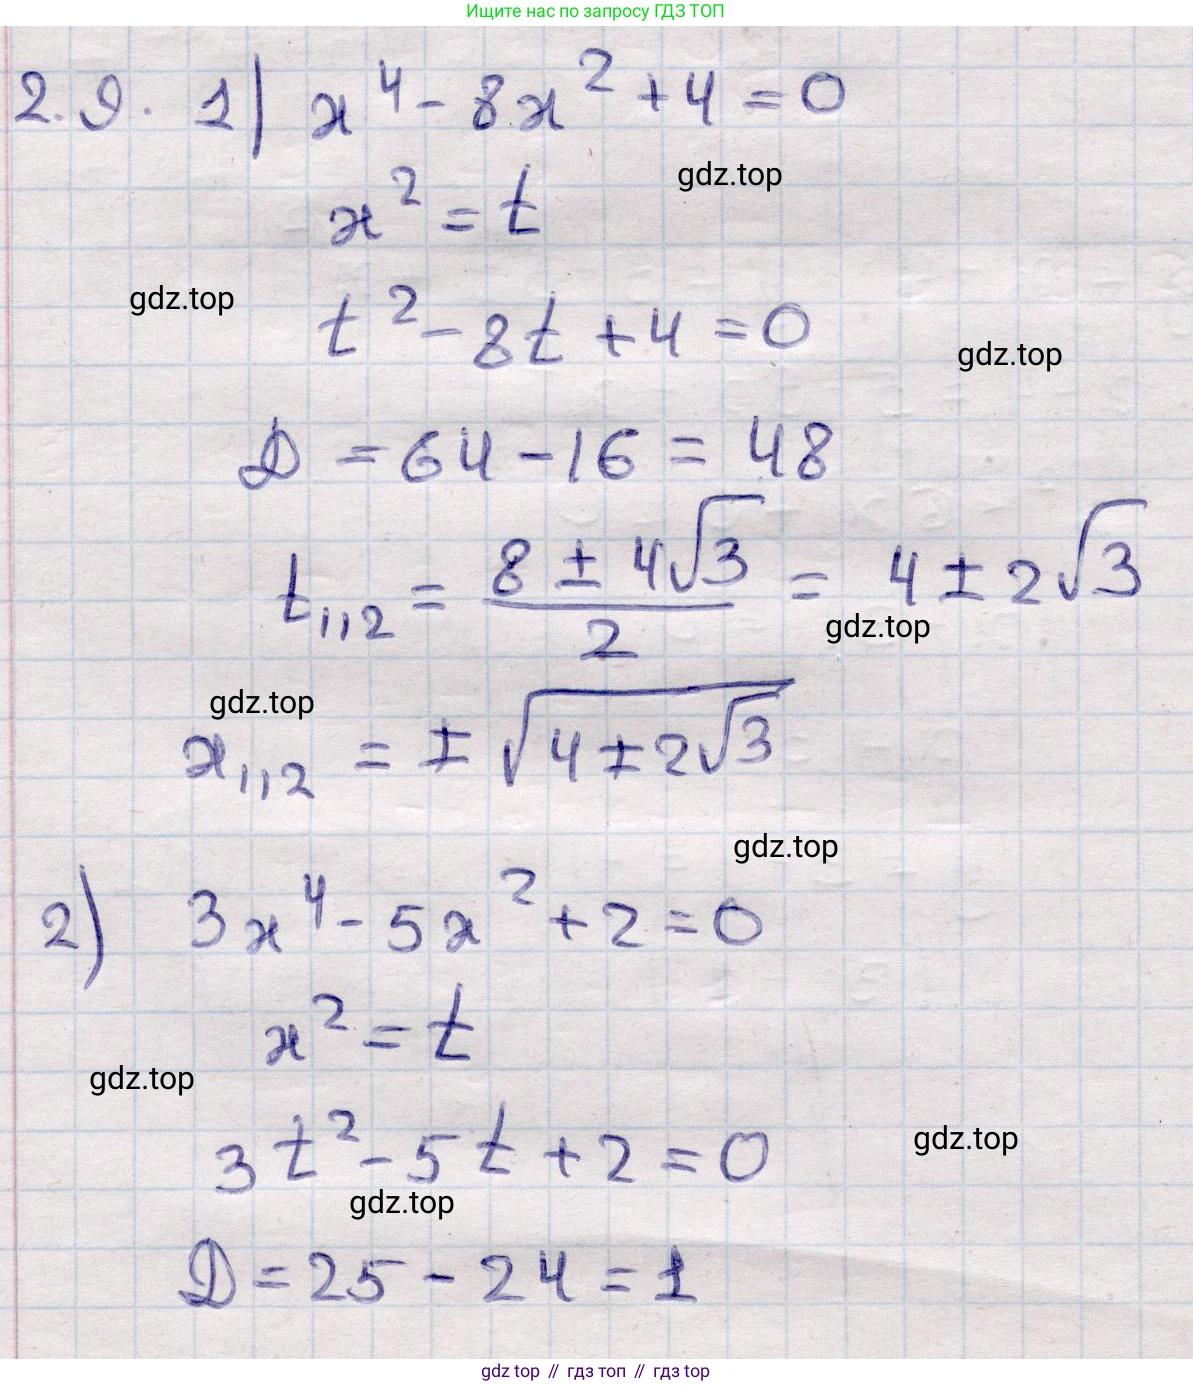 Ищите нас по запросу ГДЗ ТОП
2.9. 1) x^4 - 8x^2 + 4 = 0
gdz.top
x^2 = t
gdz.top
t^2 - 8t + 4 = 0
gdz.top
D = 64 - 16 = 48
t_{1,2} = \frac{8 ± 4√3}{2} = 4 ± 2√3
gdz.top
gdz.top
x_{1,2} = ± \sqrt{4 ± 2√3}
gdz.top
2) 3x^4 - 5x^2 + 2 = 0
x^2 = t
gdz.top
3t^2 - 5t + 2 = 0
gdz.top
gdz.top
D = 25 - 24 = 1
gdz top // гдз топ // гдз top